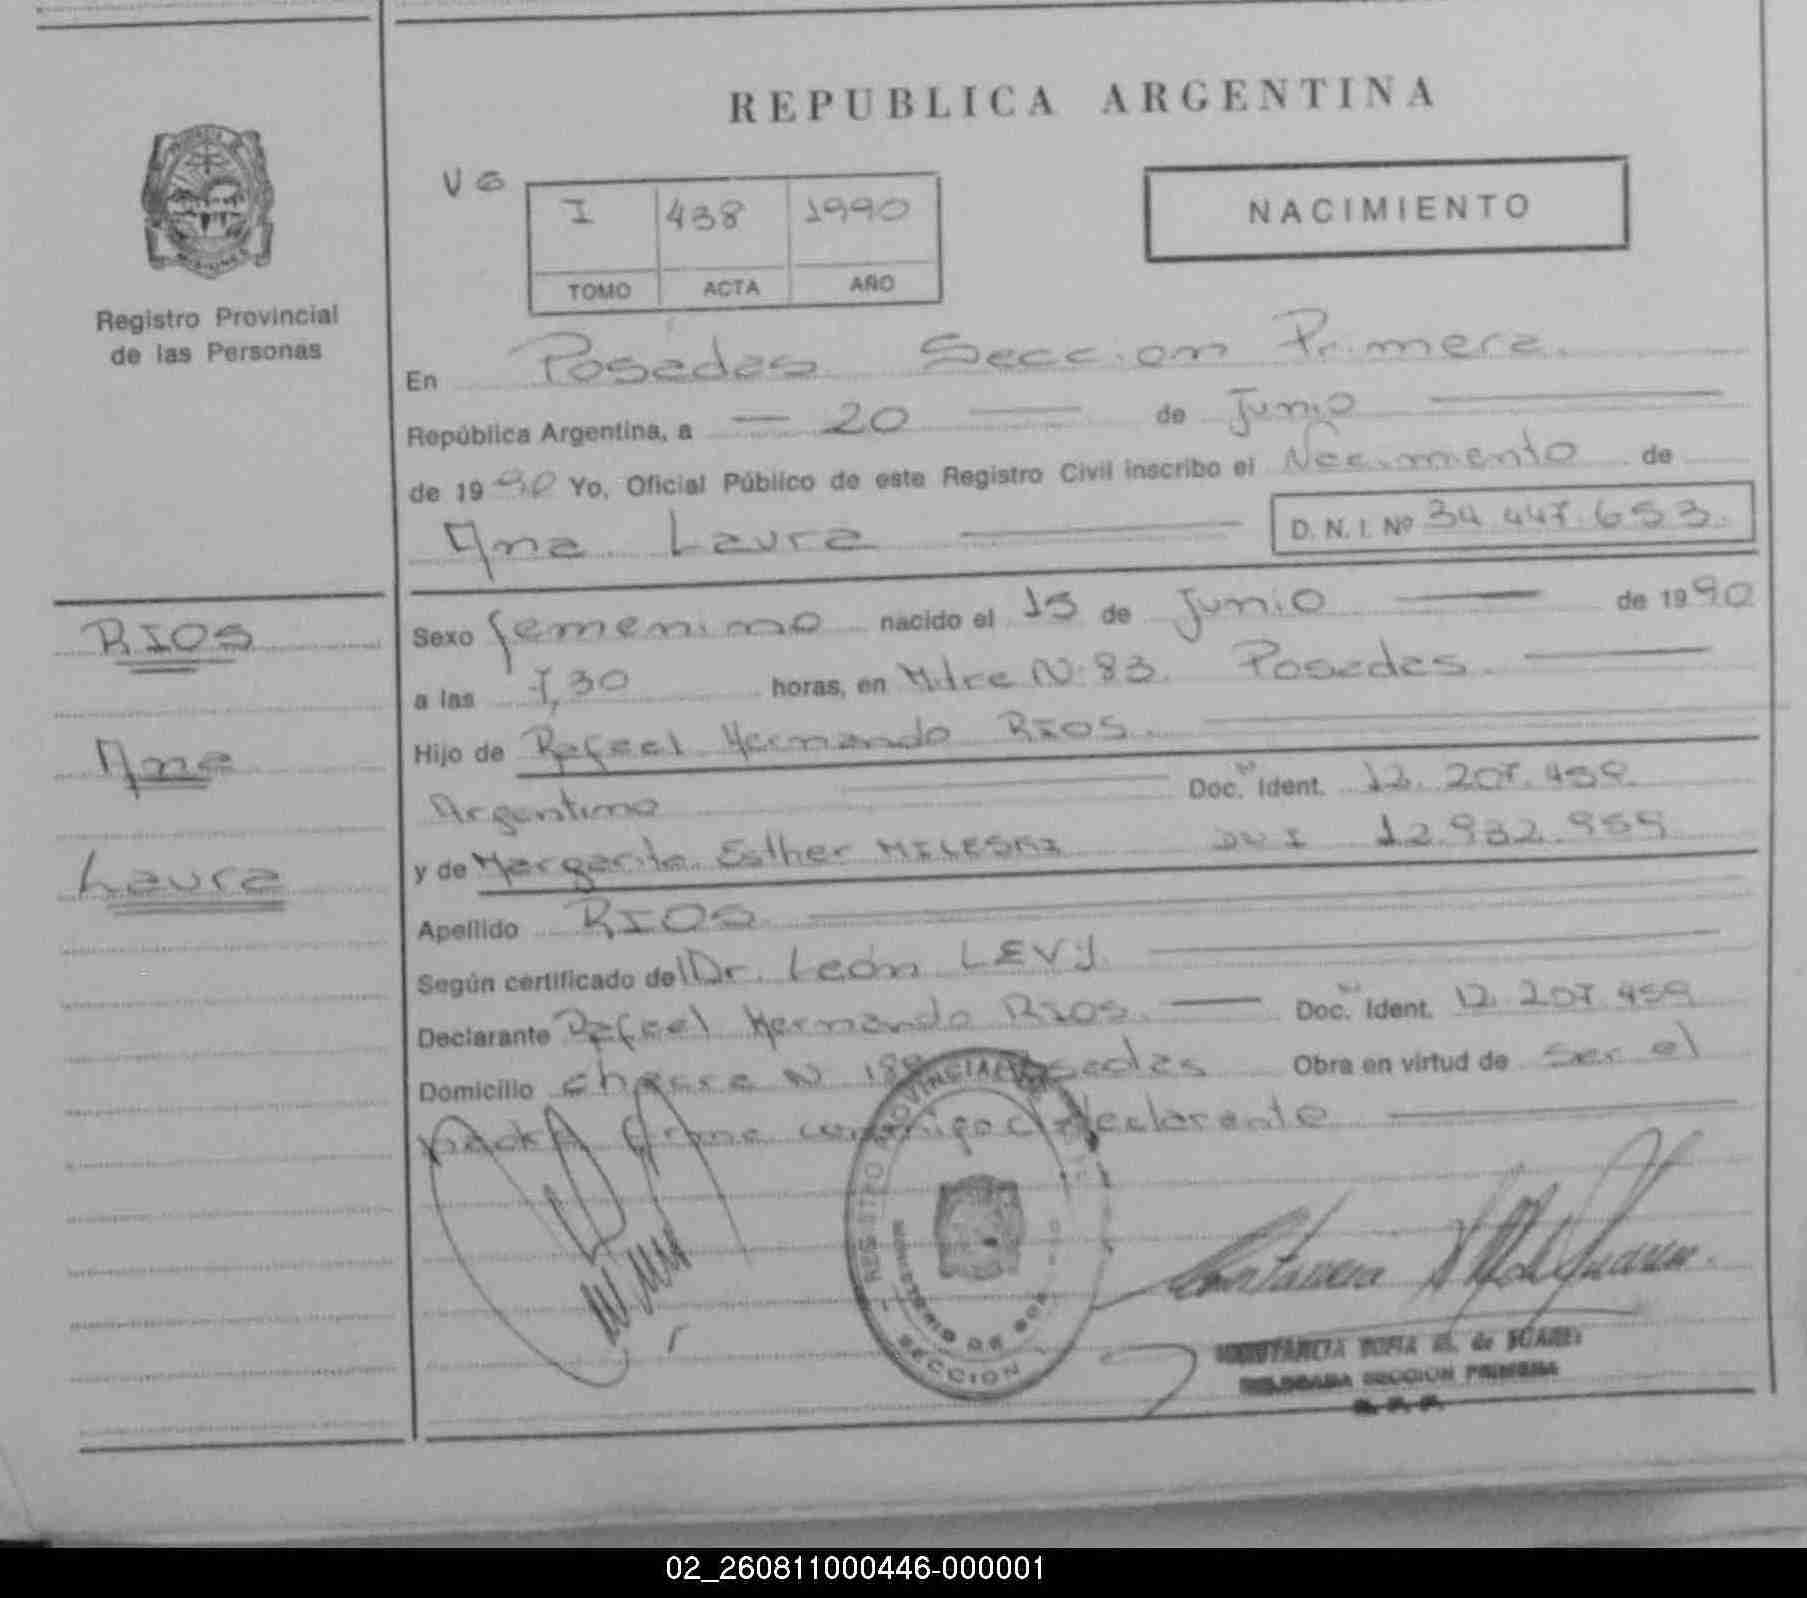 REPUBLICA ARGENTINA
NACIMIENTO
I 438 1990
TOMO ACTA AÑO
Registro Provincial
de las Personas
En Posadas Seccion Primera
República Argentina, a — 20 — de Junio —
de 1990 Yo, Oficial Público de este Registro Civil inscribo el Nacimiento de
Ana Laura — D. N. I. Nº 34.447.653.
RIOS
Ana
Laura
Sexo femenino nacido el 15 de Junio — de 1990
a las 7,30 horas, en Mitre N. 83. Posadas. —
Hijo de Rafael Hernando RIOS.
Argentino Doc. Ident. 12.207.459.
y de Margarita Esther MILESKI DNI 12.932.959
Apellido RIOS
Según certificado del Dr. León LEVY.
Declarante Rafael Hernando RIOS. — Doc. Ident. 12.207.459
Domicilio chacra N Posadas Obra en virtud de ser el
padre firma conmigo declarante —
REGISTRO PROVINCIAL
MINISTERIO DE
SECCION
CONSTANCIA SOFIA de SUAREZ
DELEGADA SECCION PRIMERA
R. P. P.
02_260811000446-000001